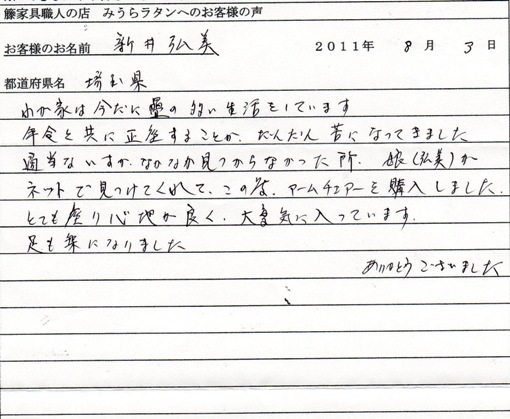 籐家具職人の店　みうらラタンへのお客様の声
お客様のお名前　新井弘美　2011年　8月　3日
都道府県名　埼玉県
わが家は今だに畳の多い生活をしています
年令と共に正座することが、だんだん苦になってきました
適当ないすが、なかなか見つからなかった所、娘(弘美)が
ネットで見つけてくれて、この度、アームチェアーを購入しました。
とても座り心地が良く、大変気に入っています。
足も楽になりました
ありがとうございました